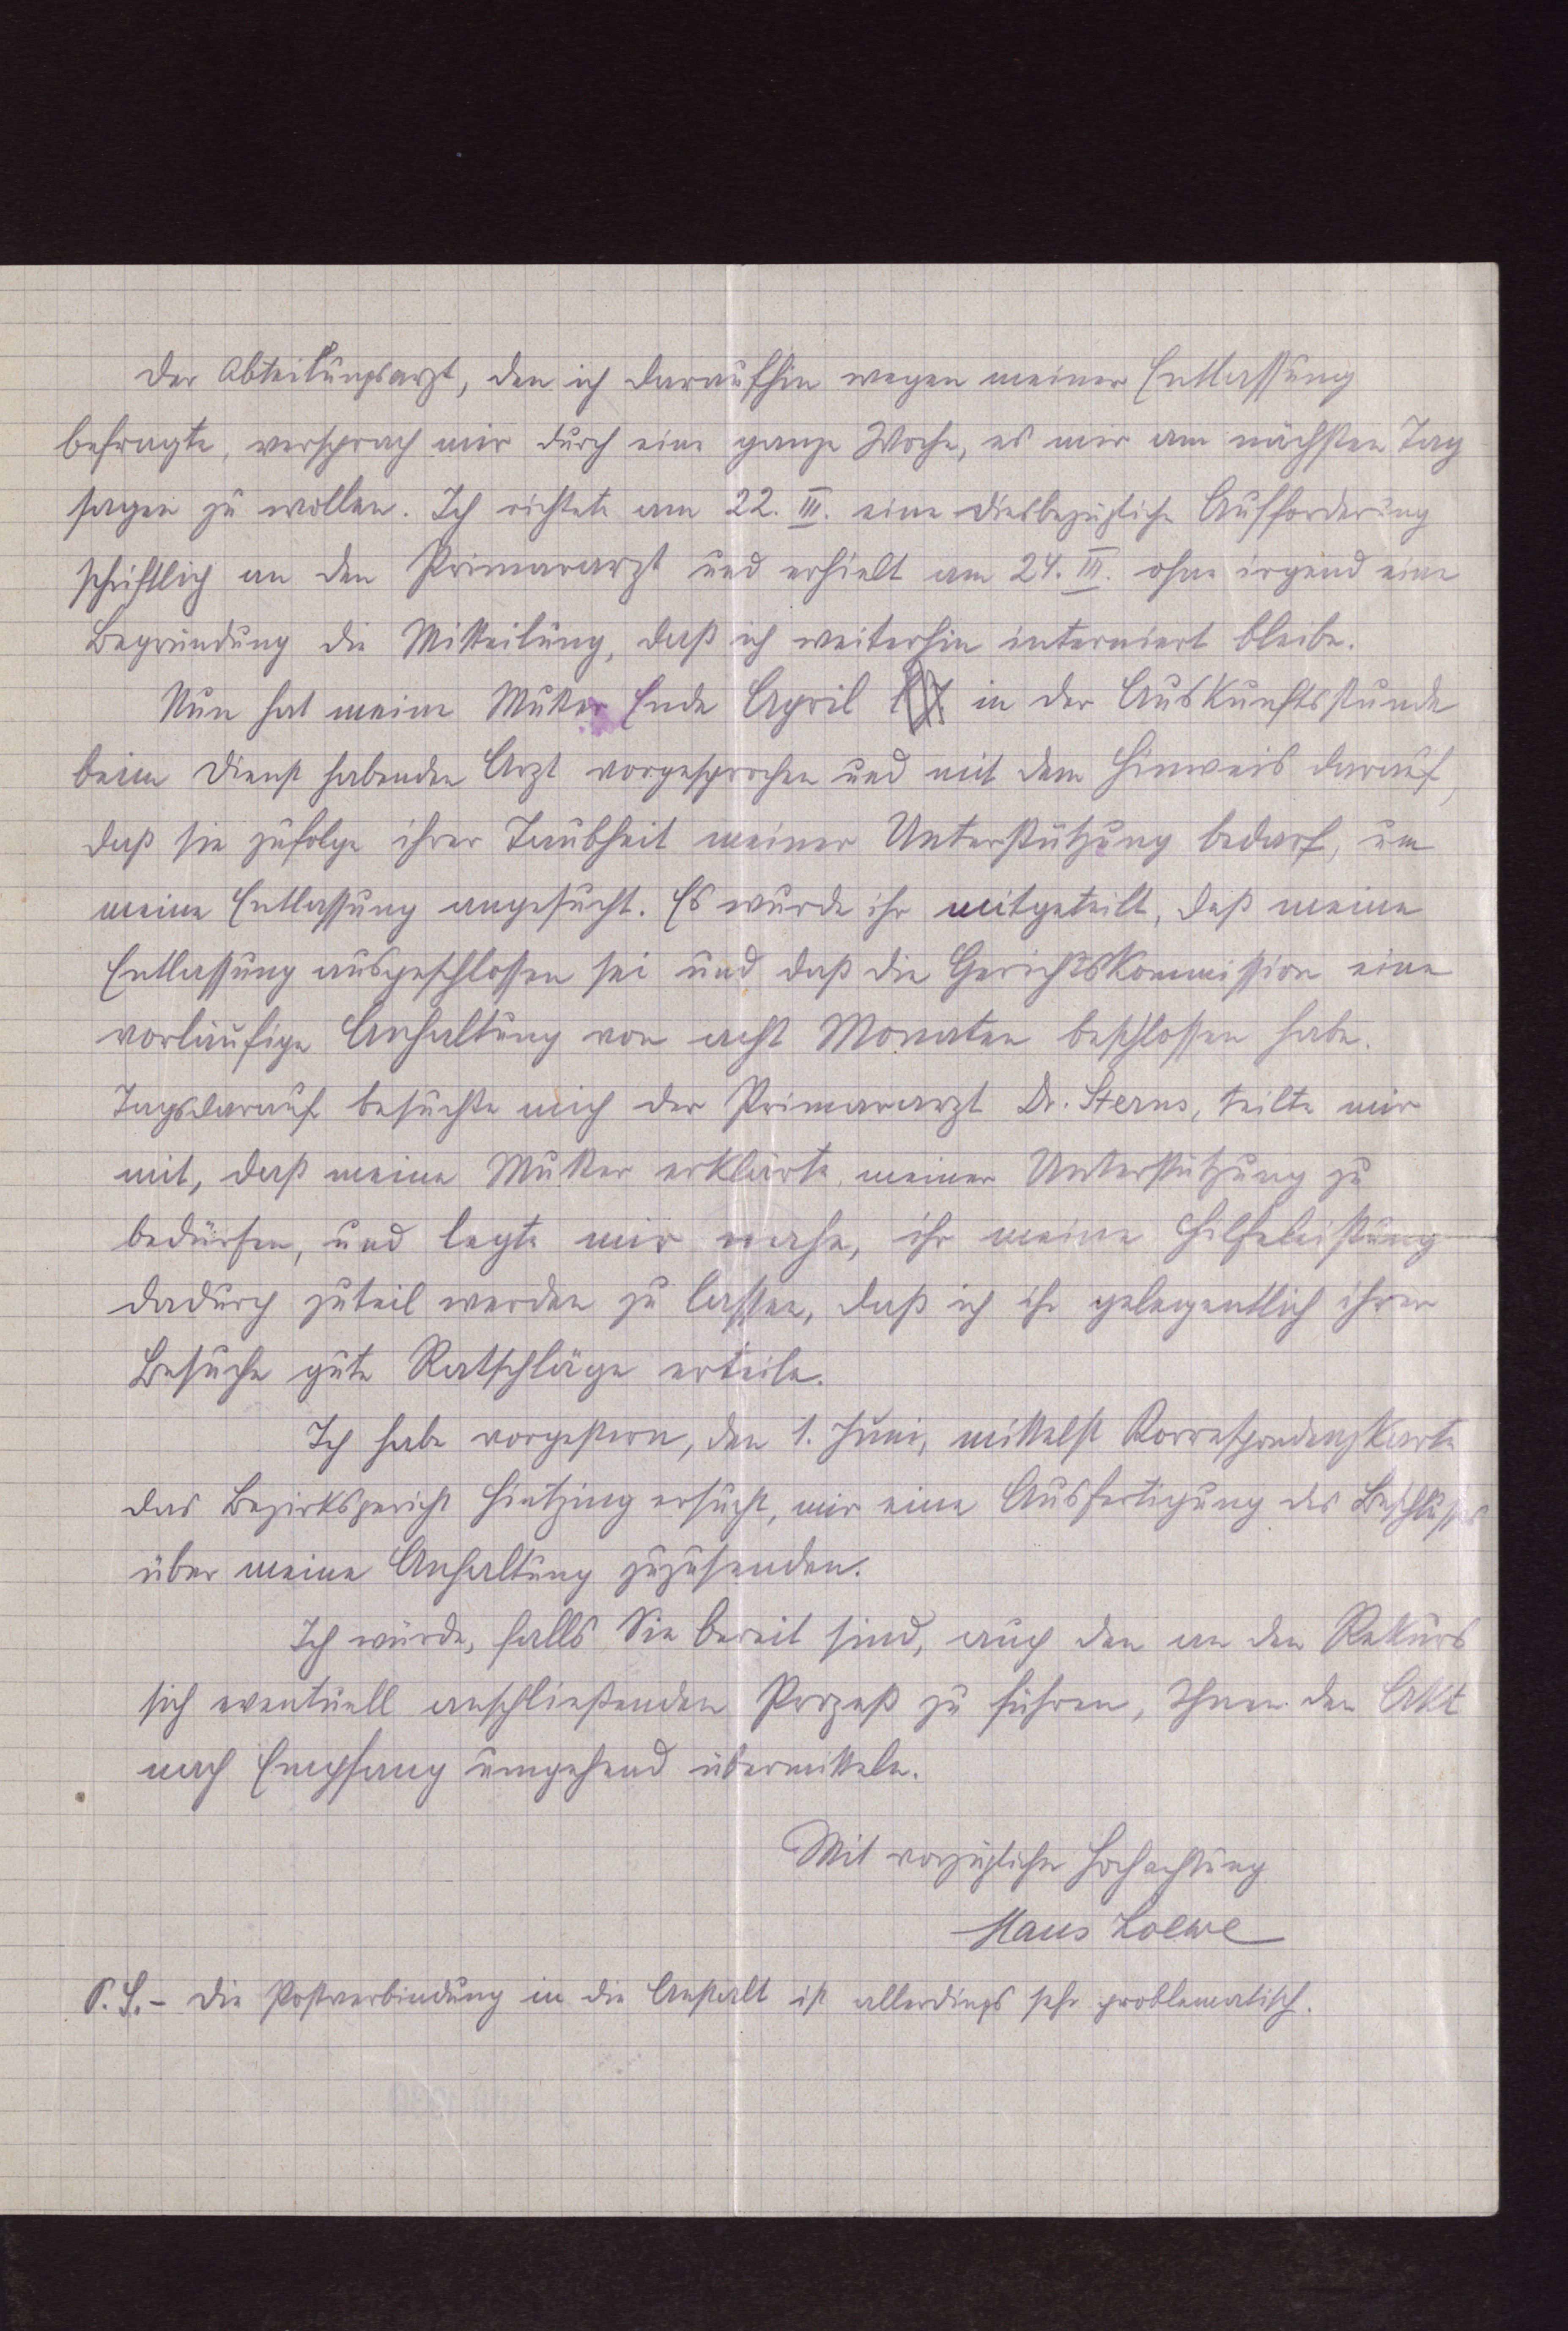 Der Abteilungsarzt, den ich daraufhin wegen meiner Entlassung
befragte, versprach mir durch eine ganze Woche, es mir am nächsten Tag
sagen zu wollen. Ich richtete am 22. III. eine diesbezügliche Aufforderung
schriftlich an den Primararzt und erhielt am 24. III. ohne irgend eine
Begründung die Mitteilung, daß ich weiterhin interniert bleibe.
Nun hat meine Mutter Ende April in der Auskunftsstunde
beim Dienst habenden Arzt vorgesprochen und mit dem Hinweis darauf,
daß sie zufolge ihrer Taubheit meiner Unterstützung bedarf, um
meine Entlassung angesucht. Es wurde ihr mitgeteilt, daß meine
Entlassung ausgeschlossen sei und daß die Gerichtskommission eine
vorläufige Anhaltung von acht Monaten beschlossen habe.
Tagsdarauf besuchte mich der Primararzt Dr. Sterns, teilte mir
mit, daß meine Mutter erklärte, meiner Unterstützung zu
bedürfen, und legte mir nahe, ihr meine Hilfeleistung
dadurch zuteil werden zu lassen, daß ich ihr gelegentlich ihrer
Besuche gute Ratschläge erteile.
Ich habe vorgestern, den 1. Juni, mittelst Korrespondenzkarte
das Bezirksgericht Hietzing ersucht, mir eine Ausfertigung des Beschlusses
über meine Anhaltung zuzusenden.
Ich würde, falls Sie bereit sind, auch den an den Rekurs
sich eventuell anschließenden Prozeß zu führen, Ihnen den Akt
nach Empfang umgehend übermitteln.
Mit vorzüglicher Hochachtung
Hans Loewe
P.S. - Die Postverbindung in die Anstalt ist allerdings sehr problematisch.